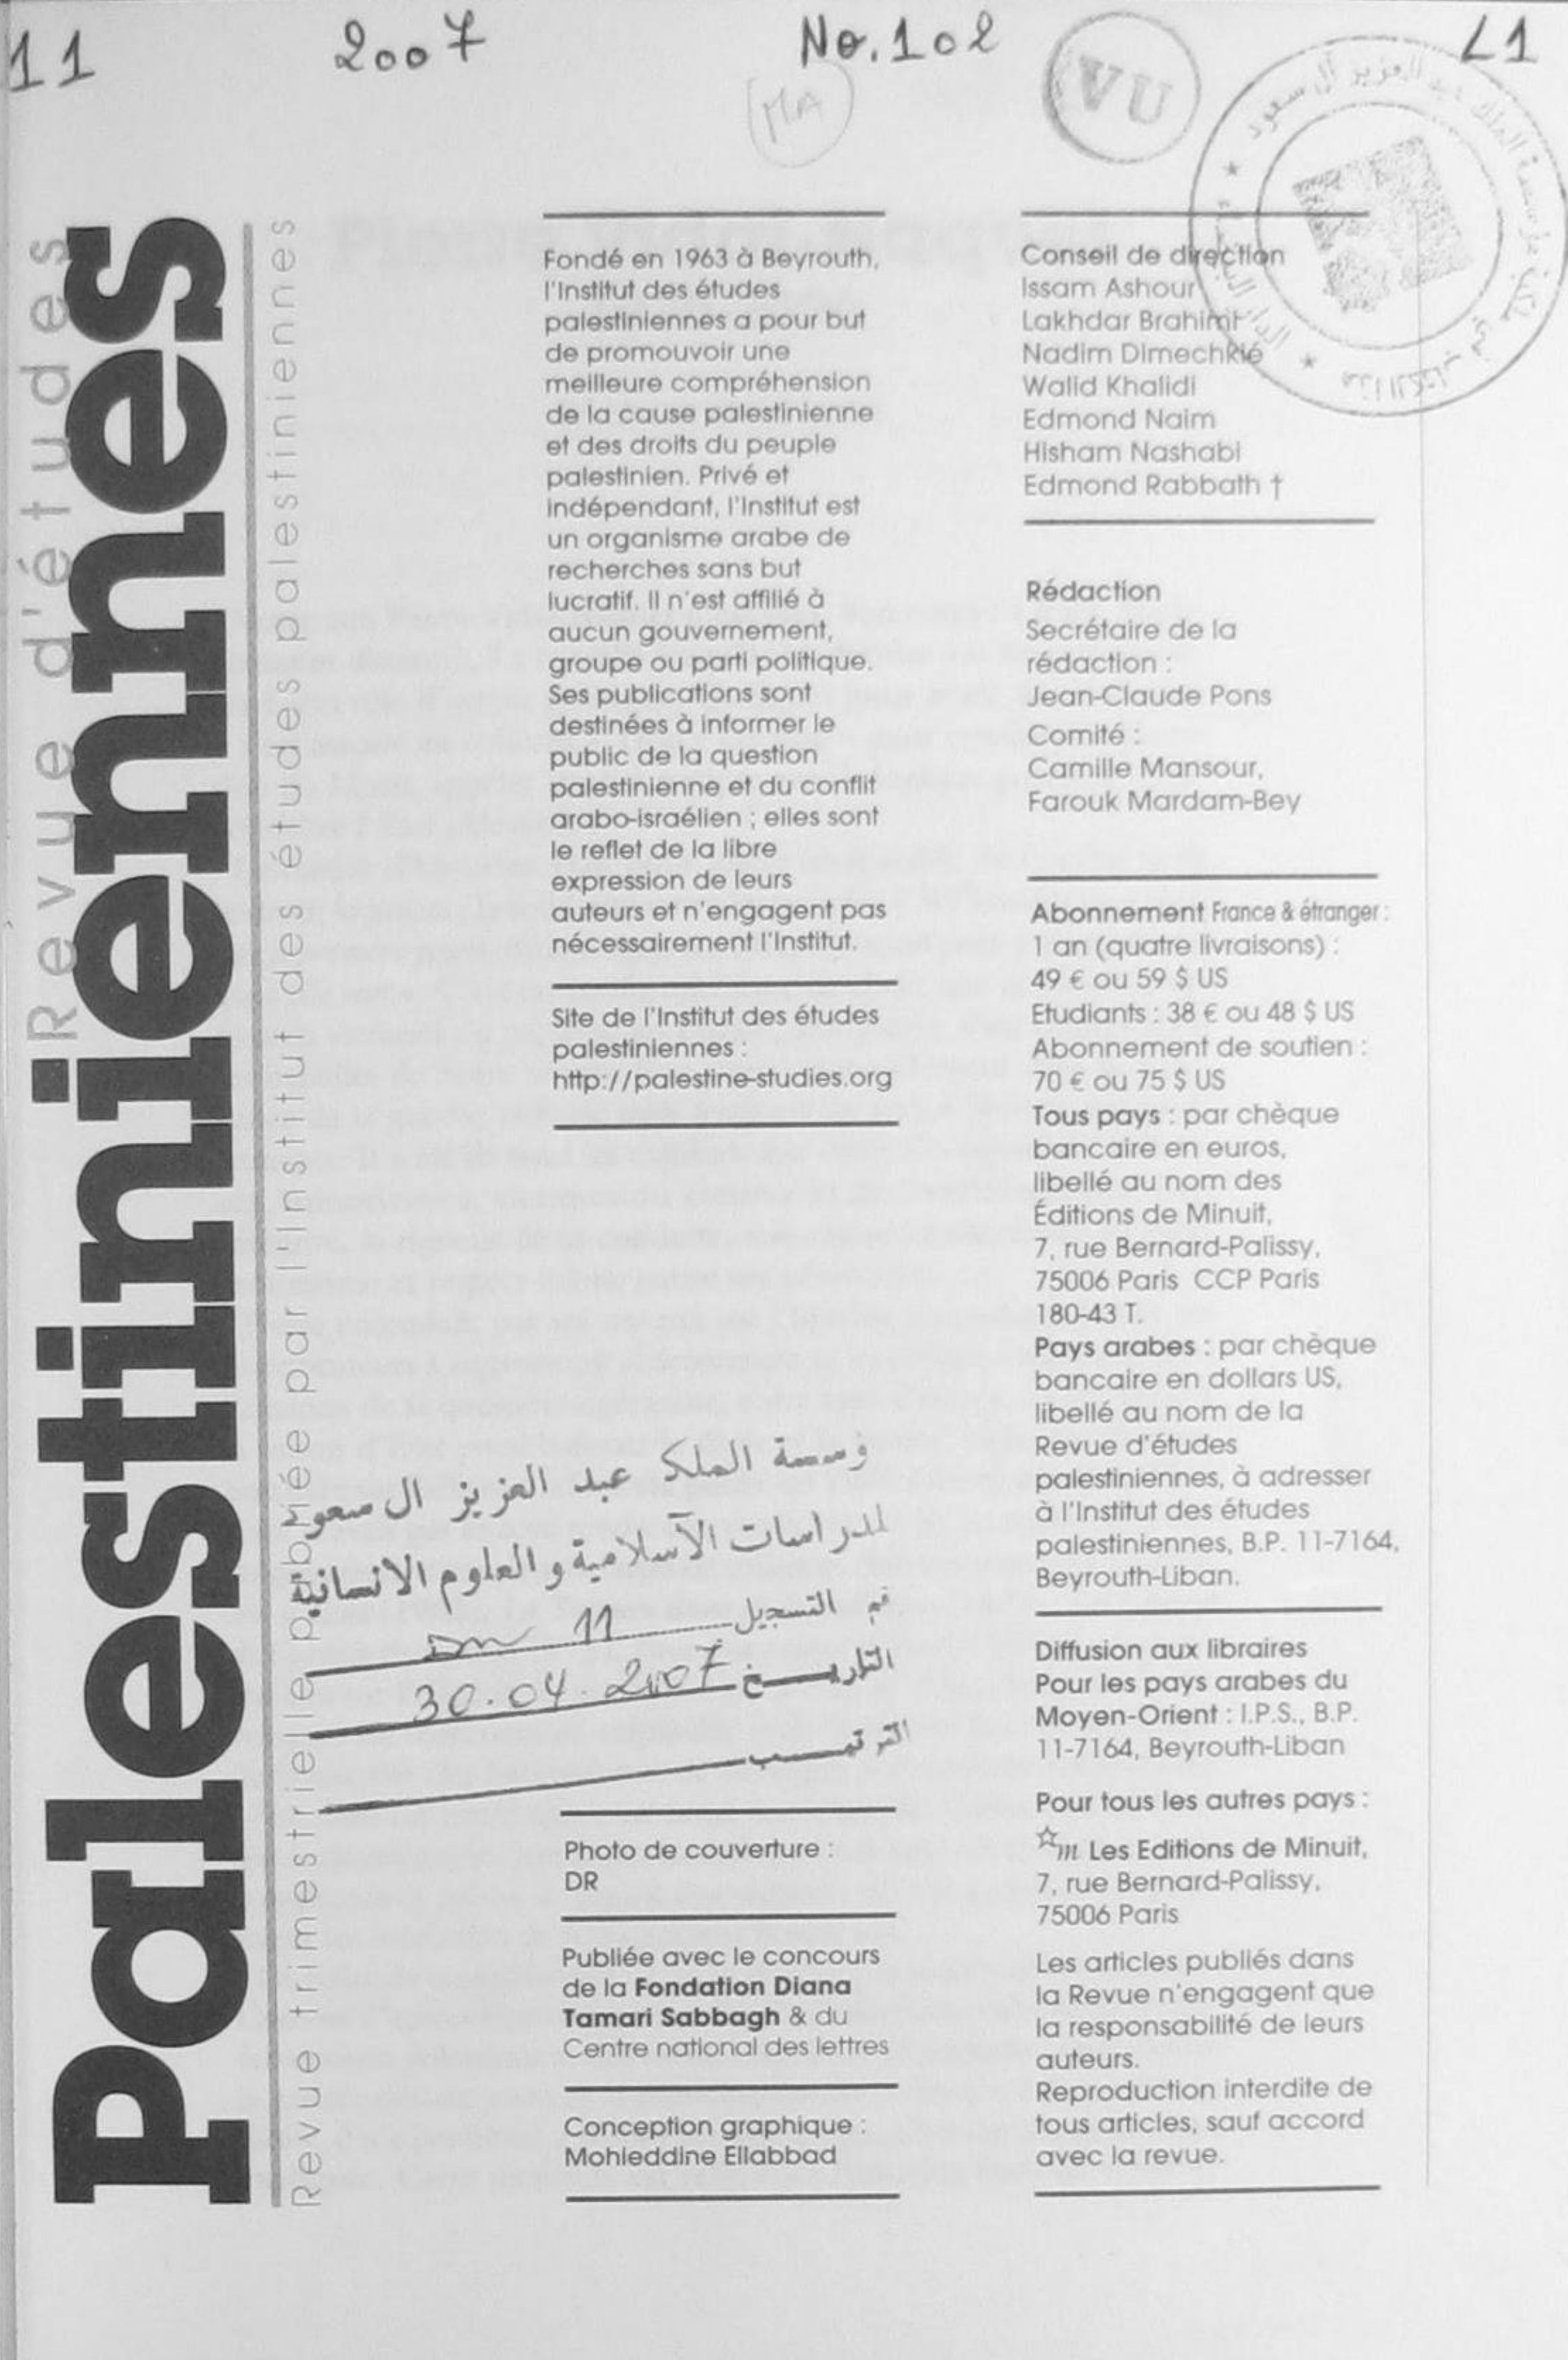 11
2007
No.102
L1
MA
VU
Revue d'études
Palestiniennes
Revue trimestrielle publiée par l'Institut des études palestiniennes
Fondé en 1963 à Beyrouth,
l'Institut des études
palestiniennes a pour but
de promouvoir une
meilleure compréhension
de la cause palestinienne
et des droits du peuple
palestinien. Privé et
indépendant, l'Institut est
un organisme arabe de
recherches sans but
lucratif. Il n'est affilié à
aucun gouvernement,
groupe ou parti politique.
Ses publications sont
destinées à informer le
public de la question
palestinienne et du conflit
arabo-israélien ; elles sont
le reflet de la libre
expression de leurs
auteurs et n'engagent pas
nécessairement l'Institut.
Site de l'Institut des études
palestiniennes :
http://palestine-studies.org
وسسة الملك عبد العزيز ال سعود
للدراسات الآسلامية و العلوم الانسانية
التسجيل 11
التاريخ 30.04.2007
الترتيب
Photo de couverture :
DR
Publiée avec le concours
de la Fondation Diana
Tamari Sabbagh & du
Centre national des lettres
Conception graphique :
Mohieddine Ellabbad
Conseil de direction
Issam Ashour
Lakhdar Brahimi
Nadim Dimechkié
Walid Khalidi
Edmond Naim
Hisham Nashabi
Edmond Rabbath †
Rédaction
Secrétaire de la
rédaction :
Jean-Claude Pons
Comité :
Camille Mansour,
Farouk Mardam-Bey
Abonnement France & étranger :
1 an (quatre livraisons) :
49 € ou 59 $ US
Etudiants : 38 € ou 48 $ US
Abonnement de soutien :
70 € ou 75 $ US
Tous pays : par chèque
bancaire en euros,
libellé au nom des
Éditions de Minuit,
7, rue Bernard-Palissy,
75006 Paris CCP Paris
180-43 T.
Pays arabes : par chèque
bancaire en dollars US,
libellé au nom de la
Revue d'études
palestiniennes, à adresser
à l'Institut des études
palestiniennes, B.P. 11-7164,
Beyrouth-Liban.
Diffusion aux libraires
Pour les pays arabes du
Moyen-Orient : I.P.S., B.P.
11-7164, Beyrouth-Liban
Pour tous les autres pays :
☆m Les Editions de Minuit,
7, rue Bernard-Palissy,
75006 Paris
Les articles publiés dans
la Revue n'engagent que
la responsabilité de leurs
auteurs.
Reproduction interdite de
tous articles, sauf accord
avec la revue.